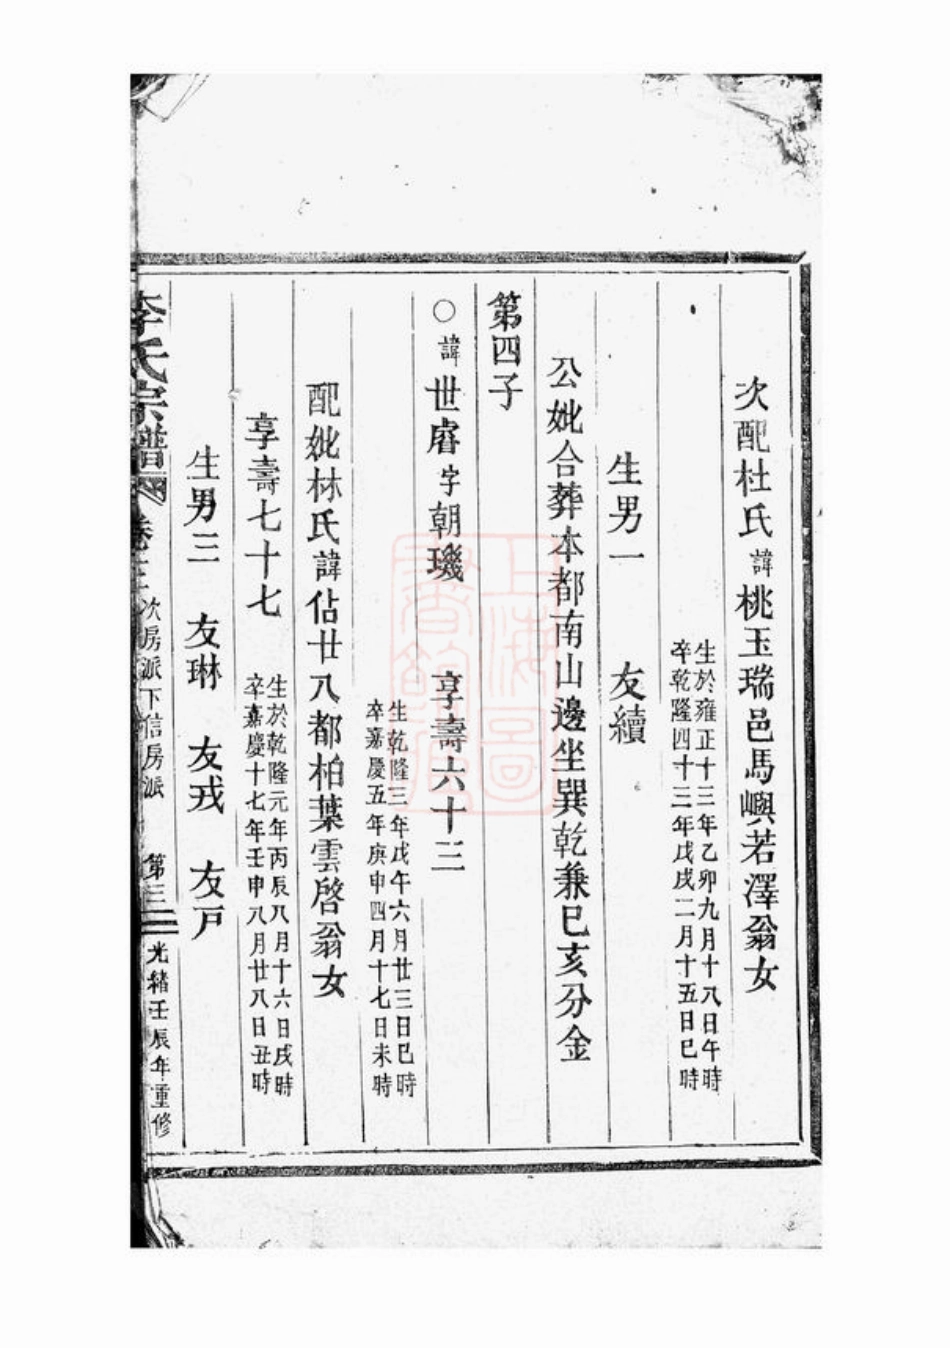 次配杜氏諱桃玉瑞邑馬嶼若澤翁女
生於雍正十三年乙卯九月十八日午時
卒乾隆四十三年戊戌二月十五日巳時
生男一　友續
公妣合葬本都南山邊坐巽乾兼巳亥分金
第四子
○諱世睿字朝璣　享壽六十三
生乾隆三年戊午六月廿三日巳時
卒嘉慶五年庚申四月十七日未時
配妣林氏諱佔廿八都柏葉雲啓翁女
享壽七十七
生於乾隆元年丙辰八月十六日戌時
卒嘉慶十七年壬申八月廿八日丑時
生男三　友琳　友戎　友戸
李氏宗譜　卷三　次房派下信房派　第三　光緒壬辰年重修
上海圖書館藏